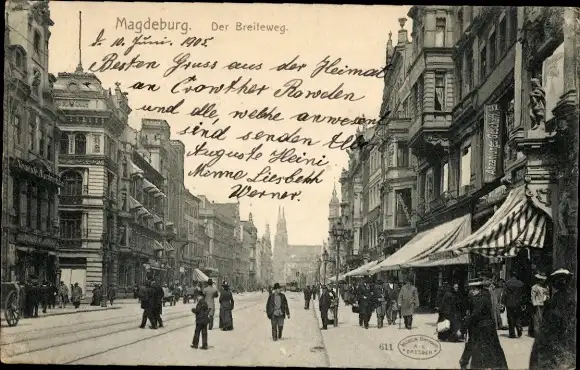 Magdeburg. Der Breiteweg.
d. 10. Juni. 1905.
Besten Gruss aus der Heimat
an Crowther Rawelen
und alle, welche anwesend
sind senden
Auguste Heini
Menne Liesbeth
Werner.
611
DRESDEN